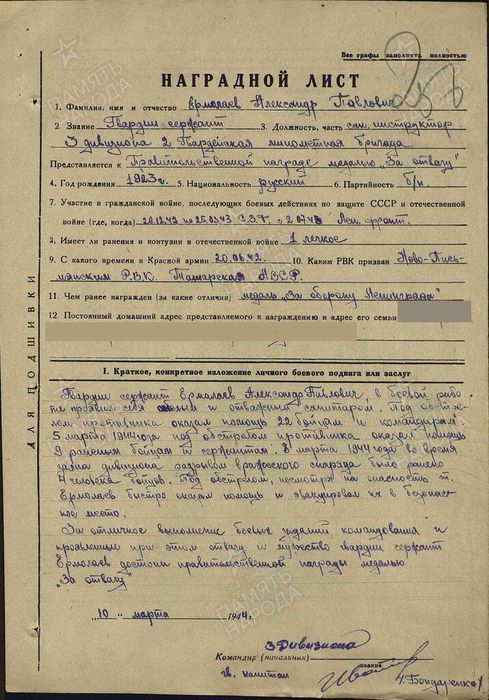 Все графы заполнить полностью
253
НАГРАДНОЙ ЛИСТ
1. Фамилия, имя и отчество Ермолаев Александр Павлович
2. Звание Гвардии сержант 3. Должность, часть сан. инструктор
3 дивизиона 2 Гвардейская минометная бригада
Представляется к Правительственной награде медалью "За отвагу"
4. Год рождения 1923 г. 5. Национальность русский 6. Партийность б/п
7. Участие в гражданской войне, последующих боевых действиях по защите СССР и отечественной
войне (где, когда) 20.12.42 по 25.03.43 С.З.Ф. с 2.07.43 Лен. фронт.
8. Имеет ли ранения и контузии в отечественной войне 1 легкое
9. С какого времени в Красной армии 20.06.42. 10. Каким РВК призван Ново-Пись-
мянским Р.В.К. Татарская АССР.
11. Чем ранее награжден (за какие отличия) медаль "За оборону Ленинграда"
12. Постоянный домашний адрес представляемого к награждению и адрес его семьи
I. Краткое, конкретное изложение личного боевого подвига или заслуг
Гвардии сержант Ермолаев Александр Павлович, в боевой рабо-
те проявил себя смелым и отважным санитаром. Под обстре-
лом противника оказал помощь 22 бойцам и командирам
5 марта 1944 года под обстрелом противника оказал помощь
9 раненым бойцам и сержантам. 8 марта 1944 года во время
залпа дивизиона разрывом вражеского снаряда было ранено
4 человека бойцов. Под обстрелом, несмотря на опасность т.
Ермолаев быстро оказал помощь и эвакуировал их в безопас-
ное место.
За отличное выполнение боевых заданий командования и
проявленные при этом отвагу и мужество гвардии сержант
Ермолаев достоин правительственной награды медалью
"За отвагу"
"10" марта 1944 г.
3 Дивизиона
Командир (начальник)
звание
гв. капитан
/Бондаренко/
ДЛЯ ПОДШИВКИ
ПАМЯТЬ НАРОДА
ПАМЯТЬ НАРОДА